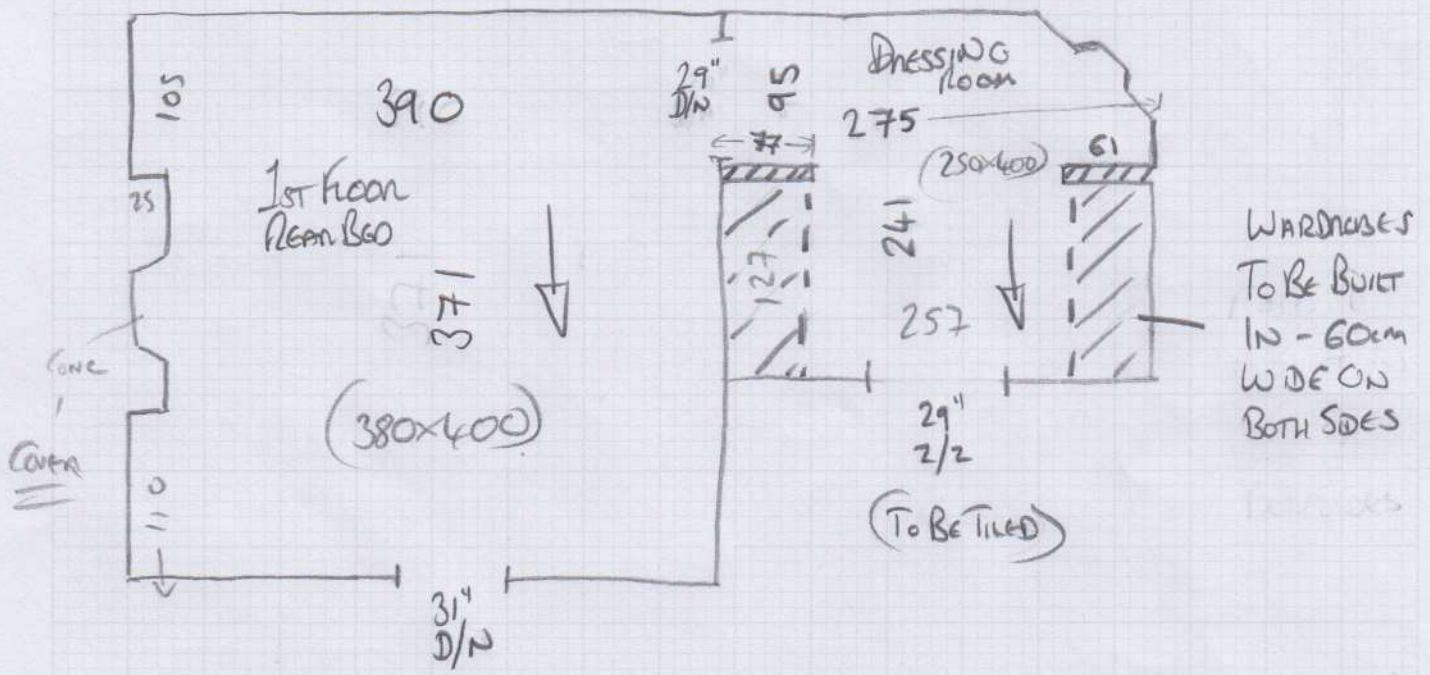 105
390
29"
D/N
95
DRESSING
ROOM
275
77
(250x400)
61
25
1ST FLOOR
REAR BED
371
127
241
257
WARDROBES
TO BE BUILT
IN - 60cm
WIDE ON
BOTH SIDES
CONC
COVER
(380x400)
110
29"
2/2
(TO BE TILED)
31"
D/N